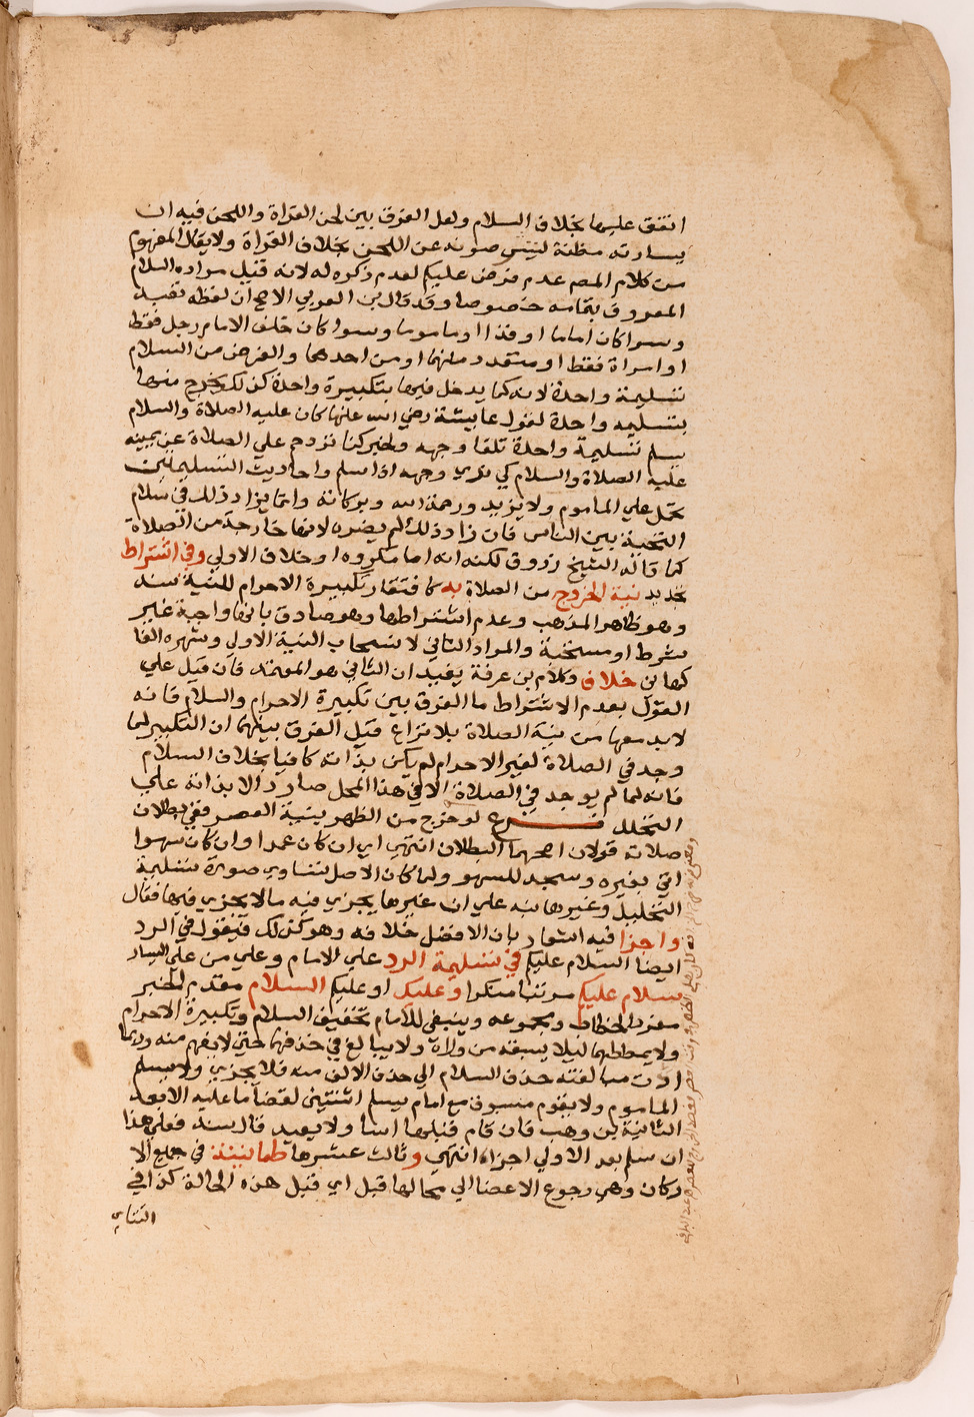 اتفق عليها بخلاف السلام ولعل الفرق بين لحن القراة واللحن فيه ان
يسارته مظنة لتيسر صونه عن اللحن بخلاف القراة ولا يقال المفهوم
من كلام المصـ عدم فرض عليكم لعدم ذكره له لانه قيل مراده السلام
المعروف بتمامه خصوصا وقد قال بن العربي الاصح ان لفظه تعبد
وسوا كان اماما او فذا او ماموما وسوا كان خلف الامام رجل فقط
او امراة فقط او متعدد منهما او من احدهما والفرض من السلام
تسليمة واحدة لانه كما يدخل فيها بتكبيرة واحدة كذلك يخرج منها
بتسليمه واحدة لقول عايشة رضي الله عنها كان عليه الصلاة والسلام
يسلم تسليمة واحدة تلقا وجهه ولخبر كنا نزدحم علي الصلاة عن يمينه
عليه الصلاة والسلام كي نري وجهه اذا سلم واحاديث التسليمتين
تحمل علي الماموم ولا يزيد ورحمة الله وبركاته وانما يزاد ذلك في سلام
التحية بين الناس فان زاد ذلك لم يضره لانها خارجة من الصلاة
كما قاله الشيخ زروق لكنه اما مكروه او خلاف الاولي وفي اشتراط
تجديد نية الخروج من الصلاة به كافتقار تكبيرة الاحرام للنية سند
وهو ظاهر المذهب وعدم اشتراطها وهو صادق بانها واجبة غير
شرط او مستحبة والمراد الثاني لانسحاب النية الاولي وشهره الفا
كهاني خلاف وكلام بن عرفة يفيد ان الثاني هو المعتمد فان قيل علي
القول بعدم الاشتراط ما الفرق بين تكبيرة الاحرام والسلام فانه
لا بد معها من نية الصلاة بلا نزاع قيل الفرق بينهما ان التكبير لما
وجد في الصلاة لغير الاحرام لم يكن بذاته كافيا بخلاف السلام
فانه لما لم يوجد في الصلاة الا في هذا المحل صار دالا بذاته علي
التحلل فرع لو خرج من الظهر بنية العصر ففي بطلان
صلاته قولان اصحهما البطلان انتهي اي ان كان عمدا وان كان سهوا
اتي بغيره وسجد للسهو ولما كان الاصل تساوي صورة تسليمة
التحليل وغيرها نبه علي ان غيرها يجزي فيه ما لا يجزي فيها فقال
واجزا فيه اشعار بان الافضل خلافه وهو كذلك فيقول في الرد
ايضا السلام عليكم في تسليمة الرد علي الامام وعلي من علي اليسار
سلام عليكم مرتبا منكرا وعليك او عليكم السلام مقدم الخبر
مفرد الخطاب ومجموعه وينبغي للامام تخفيف السلام وتكبيرة الاحرام
ولا يمططهما ليلا يسبقه من وراه ولا يبالغ في حذفها حتي لا يفهم منه وربما
ادت مبالغته حذف السلام الي حذف الالف منه فلا يجزي ولا يسلم
الماموم ولا يقوم مسبوق مع امام يسلم اثنتين لقضا ما عليه الا بعد
الثانية بن وهب فان قام قبلها اسا ولا يعيد قال سند فعلي هذا
ان سلم بعد الاولي اجزاه انتهي وثالث عشرها طمانينة في جميع الا
ركان وهي رجوع الاعضا الي محالها قبل اي قبل هذه الحالة كذا في
التتاي